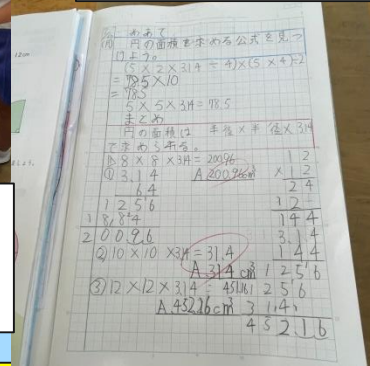 めあて
問 円の面積を求める公式を見つ
けよう。
(5×2×3.14÷4)×(5×4)÷2
=78.5×10
=785
5×5×3.14=78.5
まとめ
円の面積は 半径×半径×3.14
で求められる。
① 8×8×3.14=200.96
A.200.96cm²
3.14
64
1256
1884
200.96
12
×12
24
12
144
② 10×10×3.14=31.4
A.314cm²
③ 12×12×3.14=
A.452.16cm²
3.14
144
1256
1256
314
452.16